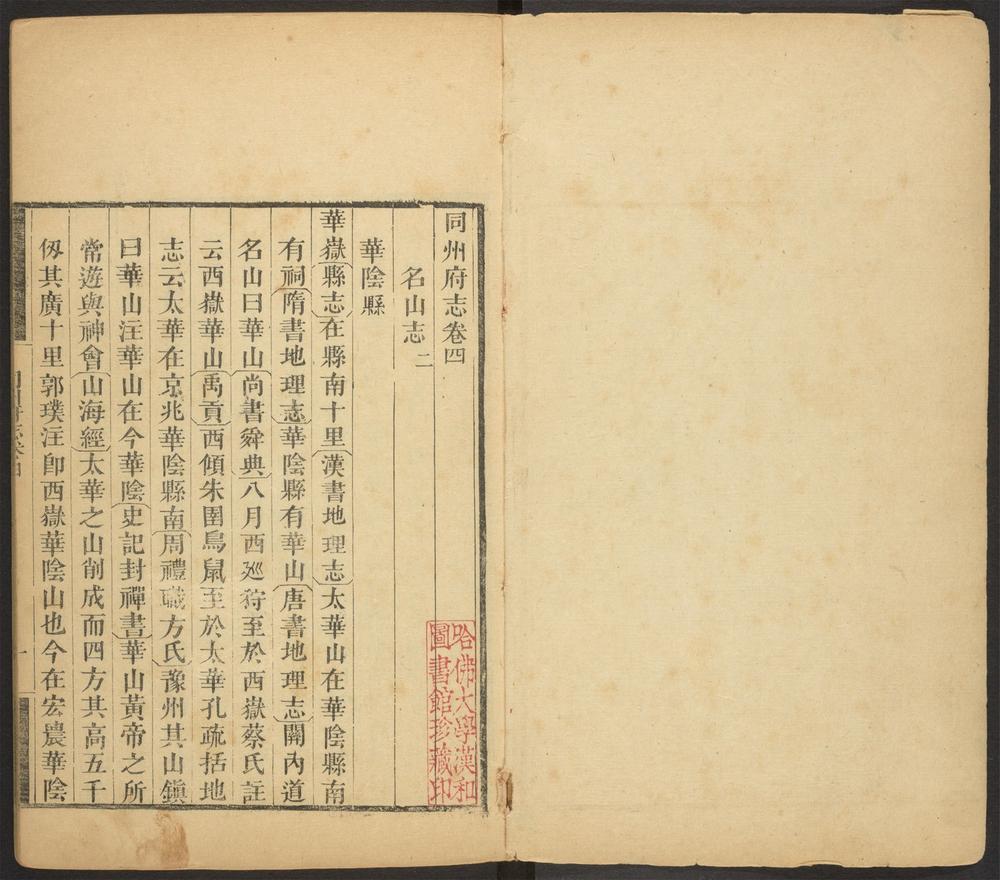 同州府志卷四
名山志 二
華陰縣
華嶽縣志在縣南十里漢書地理志太華山在華陰縣南
有祠隋書地理志華陰縣有華山唐書地理志關內道
名山曰華山尚書舜典八月西廵狩至於西嶽蔡氏註
云西嶽華山禹貢西傾朱圉鳥鼠至於太華孔疏括地
志云太華在京兆華陰縣南周禮職方氏豫州其山鎮
曰華山注華山在今華陰史記封禪書華山黃帝之所
常遊與神會山海經太華之山削成而四方其高五千
仭其廣十里郭璞注卽西嶽華陰山也今在宏農華陰
一
哈佛大學漢和
圖書館珍藏印